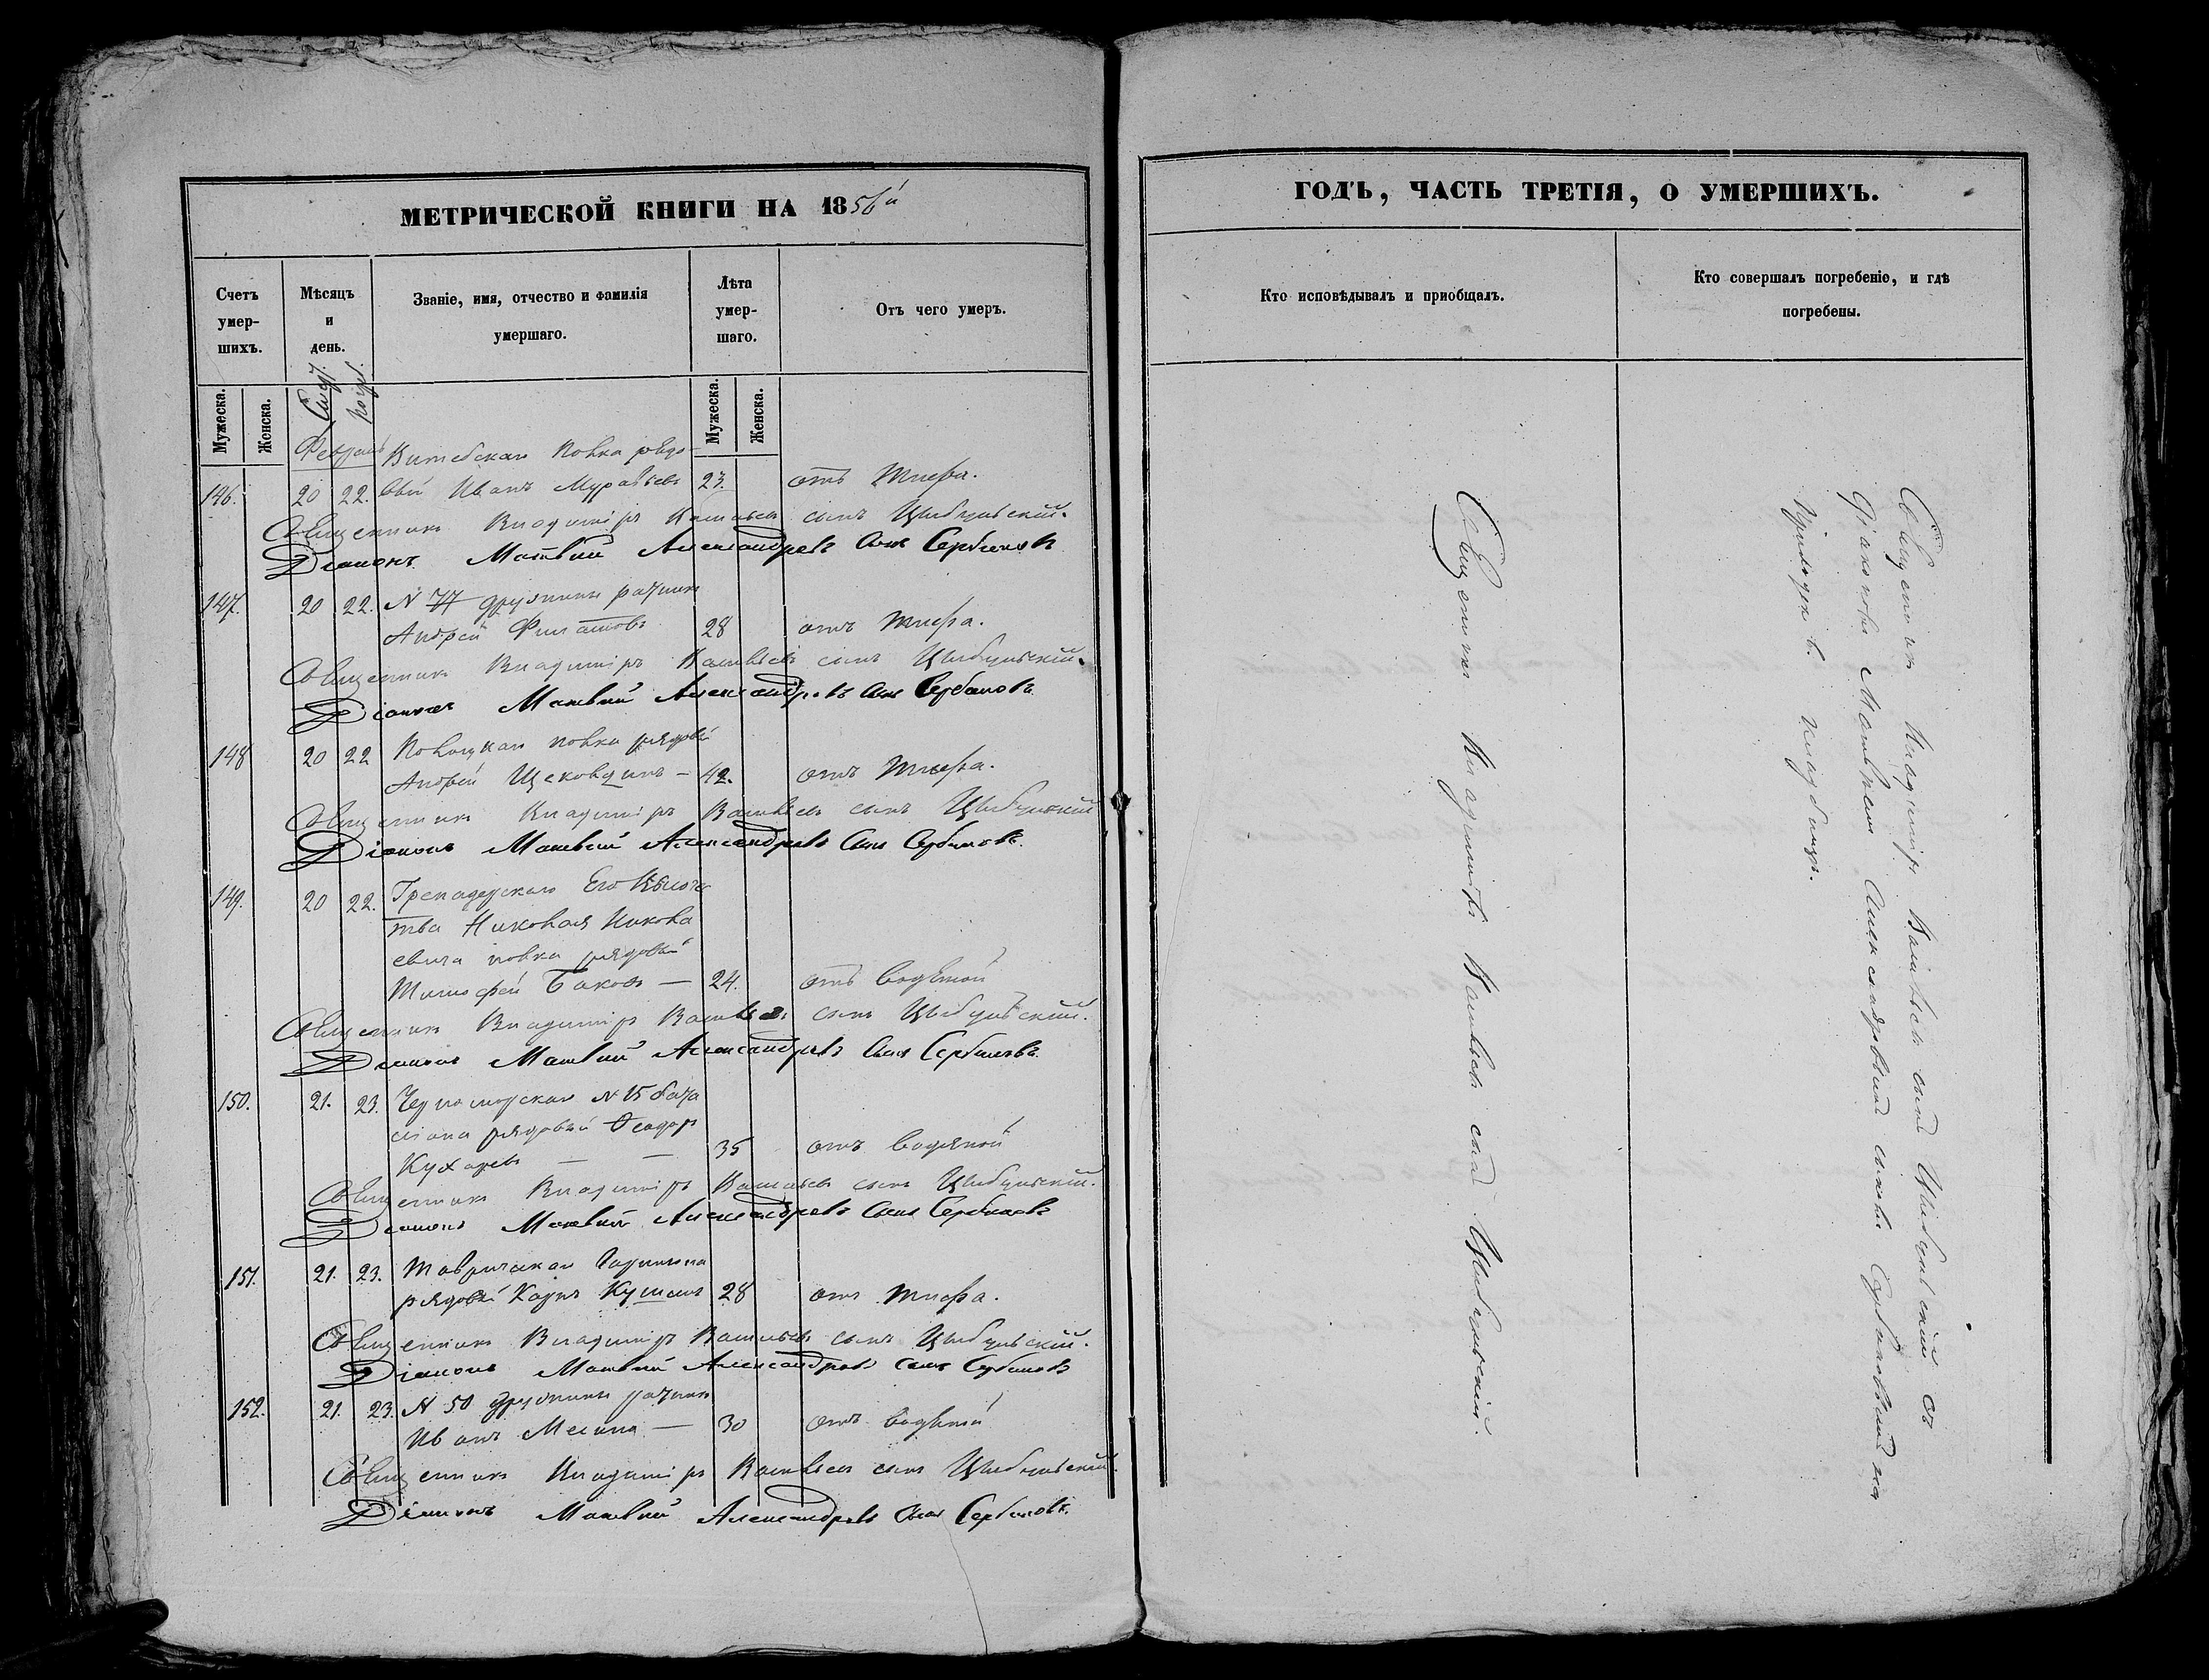 МЕТРИЧЕСКОЙ КНИГИ НА 1856й
Счетъ умер-шихъ.
Мѣсяцъ и день.
Званіе, имя, отчество и фамилія умершаго.
Лѣта умер-шаго.
Отъ чего умеръ.
Мужеска.
Женска.
Мужеска.
Женска.
Февраль Витебскаго полка рядо-
146. 20 22. вый Иванъ Муравьевъ 23. отъ тифа.
Священникъ Владиміръ Васильевъ сынъ Цыбульскій.
Діаконъ Матвѣй Александровъ сынъ Сербиновъ
147. 20 22. N 77 дружины ратникъ
Андрей Филатовъ 28 отъ тифа.
Священникъ Владиміръ Васильевъ сынъ Цыбульскій.
Діаконъ Матвѣй Александровъ сынъ Сербиновъ
148 20 22 Полоцкаго полка рядовый
Андрей Щековцинъ – 42. отъ тифа.
Священникъ Владиміръ Васильевъ сынъ Цыбульскій
Діаконъ Матвѣй Александровъ сынъ Сербиновъ.
149. 20 22. Гренадерскаго Его Высоче
тва Николая Никола
евича полка рядовый
Тимофей Баковъ — 24. отъ водяной
Священникъ Владиміръ Васильевъ сынъ Цыбульскій.
Діаконъ Матвѣй Александровъ сынъ Сербиновъ.
150. 21. 23. Черноморскаго N 15 бата
ліона рядовый Ѳеодоръ
Кухаревъ — — 35 отъ водяной
Священникъ Владиміръ Васильевъ сынъ Цыбульскій.
Діаконъ Матвѣй Александровъ сынъ Сербиновъ
151. 21. 23. Таврическаго Гарнизона
рядовый Карпъ 28 отъ тифа.
Священникъ Владиміръ Васильевъ сынъ Цыбульскій.
Діаконъ Матвѣй Александровъ сынъ Сербиновъ
152. 21. 23. N 50 дружины ратникъ
Иванъ — 30 отъ водяной
Священникъ Владиміръ Васильевъ сынъ Цыбульскій.
Діаконъ Матвѣй Александровъ сынъ Сербиновъ.
ГОДЪ, ЧАСТЬ ТРЕТІЯ, О УМЕРШИХЪ.
Кто исповѣдывалъ и приобщалъ.
Кто совершалъ погребеніе, и гдѣ погребены.
Священникъ Владиміръ Васильевъ сынъ Цыбульскій.
Священникъ Владиміръ Васильевъ сынъ Цыбульскій съ
Діакономъ Матвѣемъ Александровымъ сыномъ Сербиновымъ на
кладбищѣ.